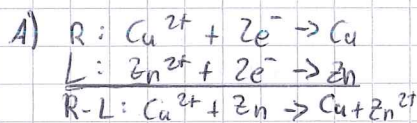 A) R: Cu²⁺ + 2e⁻ → Cu
L: Zn²⁺ + 2e⁻ → Zn
R-L: Cu²⁺ + Zn → Cu + Zn²⁺